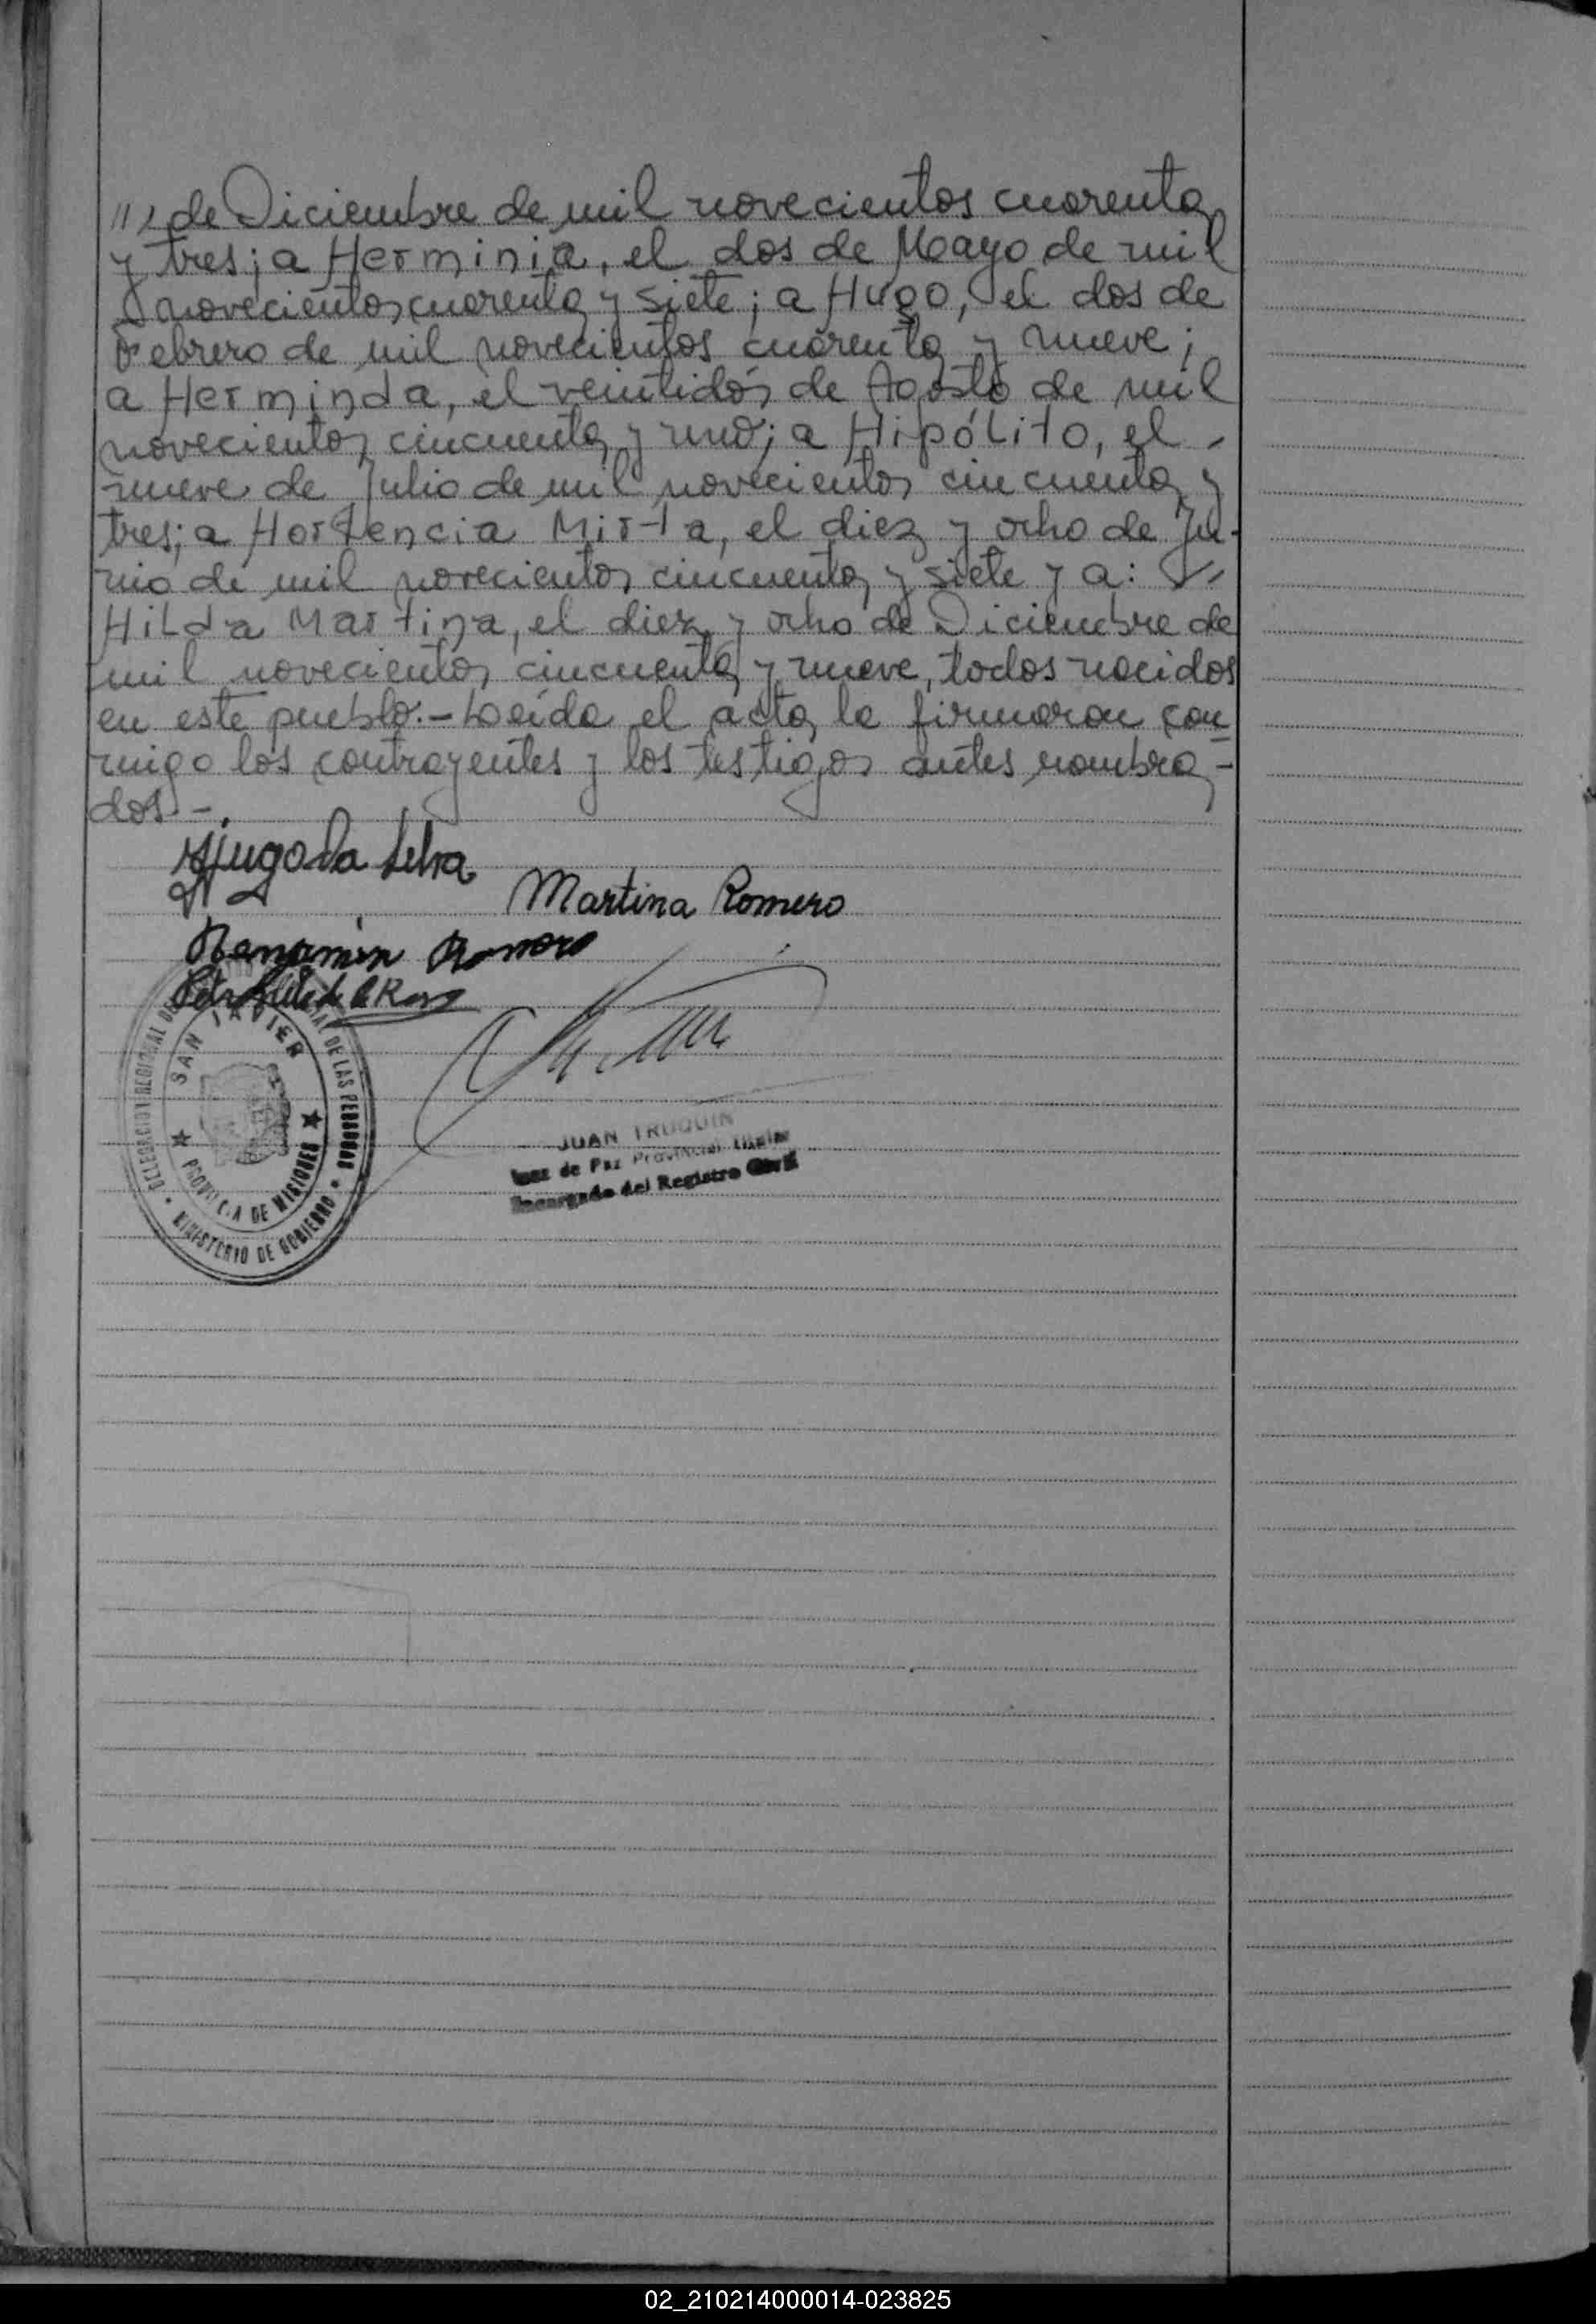 /// de Diciembre de mil novecientos cuarenta
y tres; a Herminia, el dos de Mayo de mil
novecientos cuarenta y siete; a Hugo, el dos de
Febrero de mil novecientos cuarenta y nueve;
a Herminda, el veintidós de Agosto de mil
novecientos cincuenta y uno; a Hipólito, el
nueve de Julio de mil novecientos cincuenta y
tres; a Hortencia Mirta, el diez y ocho de Ju-
nio de mil novecientos cincuenta y siete y a:
Hilda Martina, el diez y ocho de Diciembre de
mil novecientos cincuenta y nueve, todos nacidos
en este pueblo.- Leída el acta, la firmaron con
migo los contrayentes y los testigos antes nombra-
dos.-
Hugo Da Silva
Martina Romero
Benjamin Romero
SAN JAVIER
DE LAS PERSONAS
PROVINCIA DE MISIONES
MINISTERIO DE GOBIERNO
JUAN TRUQUIN
Juez de Paz Provincial Titular
Encargado del Registro Civil
02_210214000014-023825